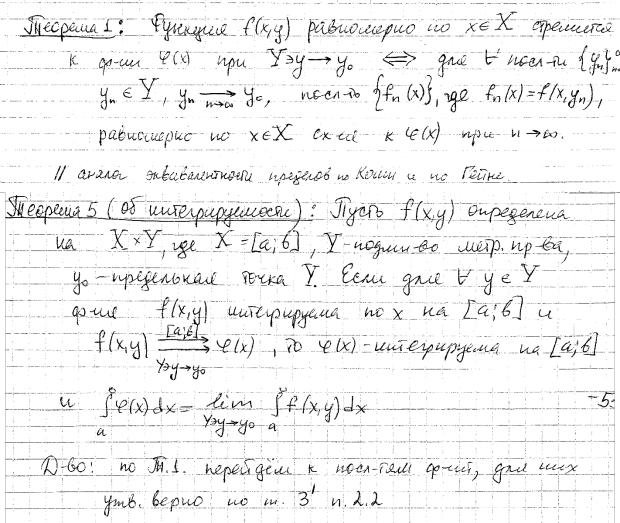 Теорема 1: Функция f(x,y) равномерно по x∈X стремится
к ф-ии φ(x) при Y∋y→y₀ ⟺ для ∀ посл-ти {yₙ}
yₙ∈Y, yₙ →(n→∞) y₀, посл-ть {fₙ(x)}, где fₙ(x)=f(x,yₙ),
равномерно по x∈X сх-ся к φ(x) при n→∞.
// аналог эквивалентности пределов по Коши и по Гейне.
Теорема 5 (Об интегрируемости): Пусть f(x,y) определена
на X×Y, где X=[a;b], Y-подмн-во метр. пр-ва,
y₀ - предельная точка Y. Если для ∀ y∈Y
ф-ия f(x,y) интегрируема по x на [a;b] и
f(x,y) ⇉([a;b], Y∋y→y₀) φ(x), то φ(x)-интегрируема на [a;b]
и ∫ₐᵇ φ(x)dx = lim(Y∋y→y₀) ∫ₐᵇ f(x,y)dx
-5-
Д-во: по Т.1. перейдём к посл-тям ф-ий, для них
утв. верно по т. 3' п. 2.2